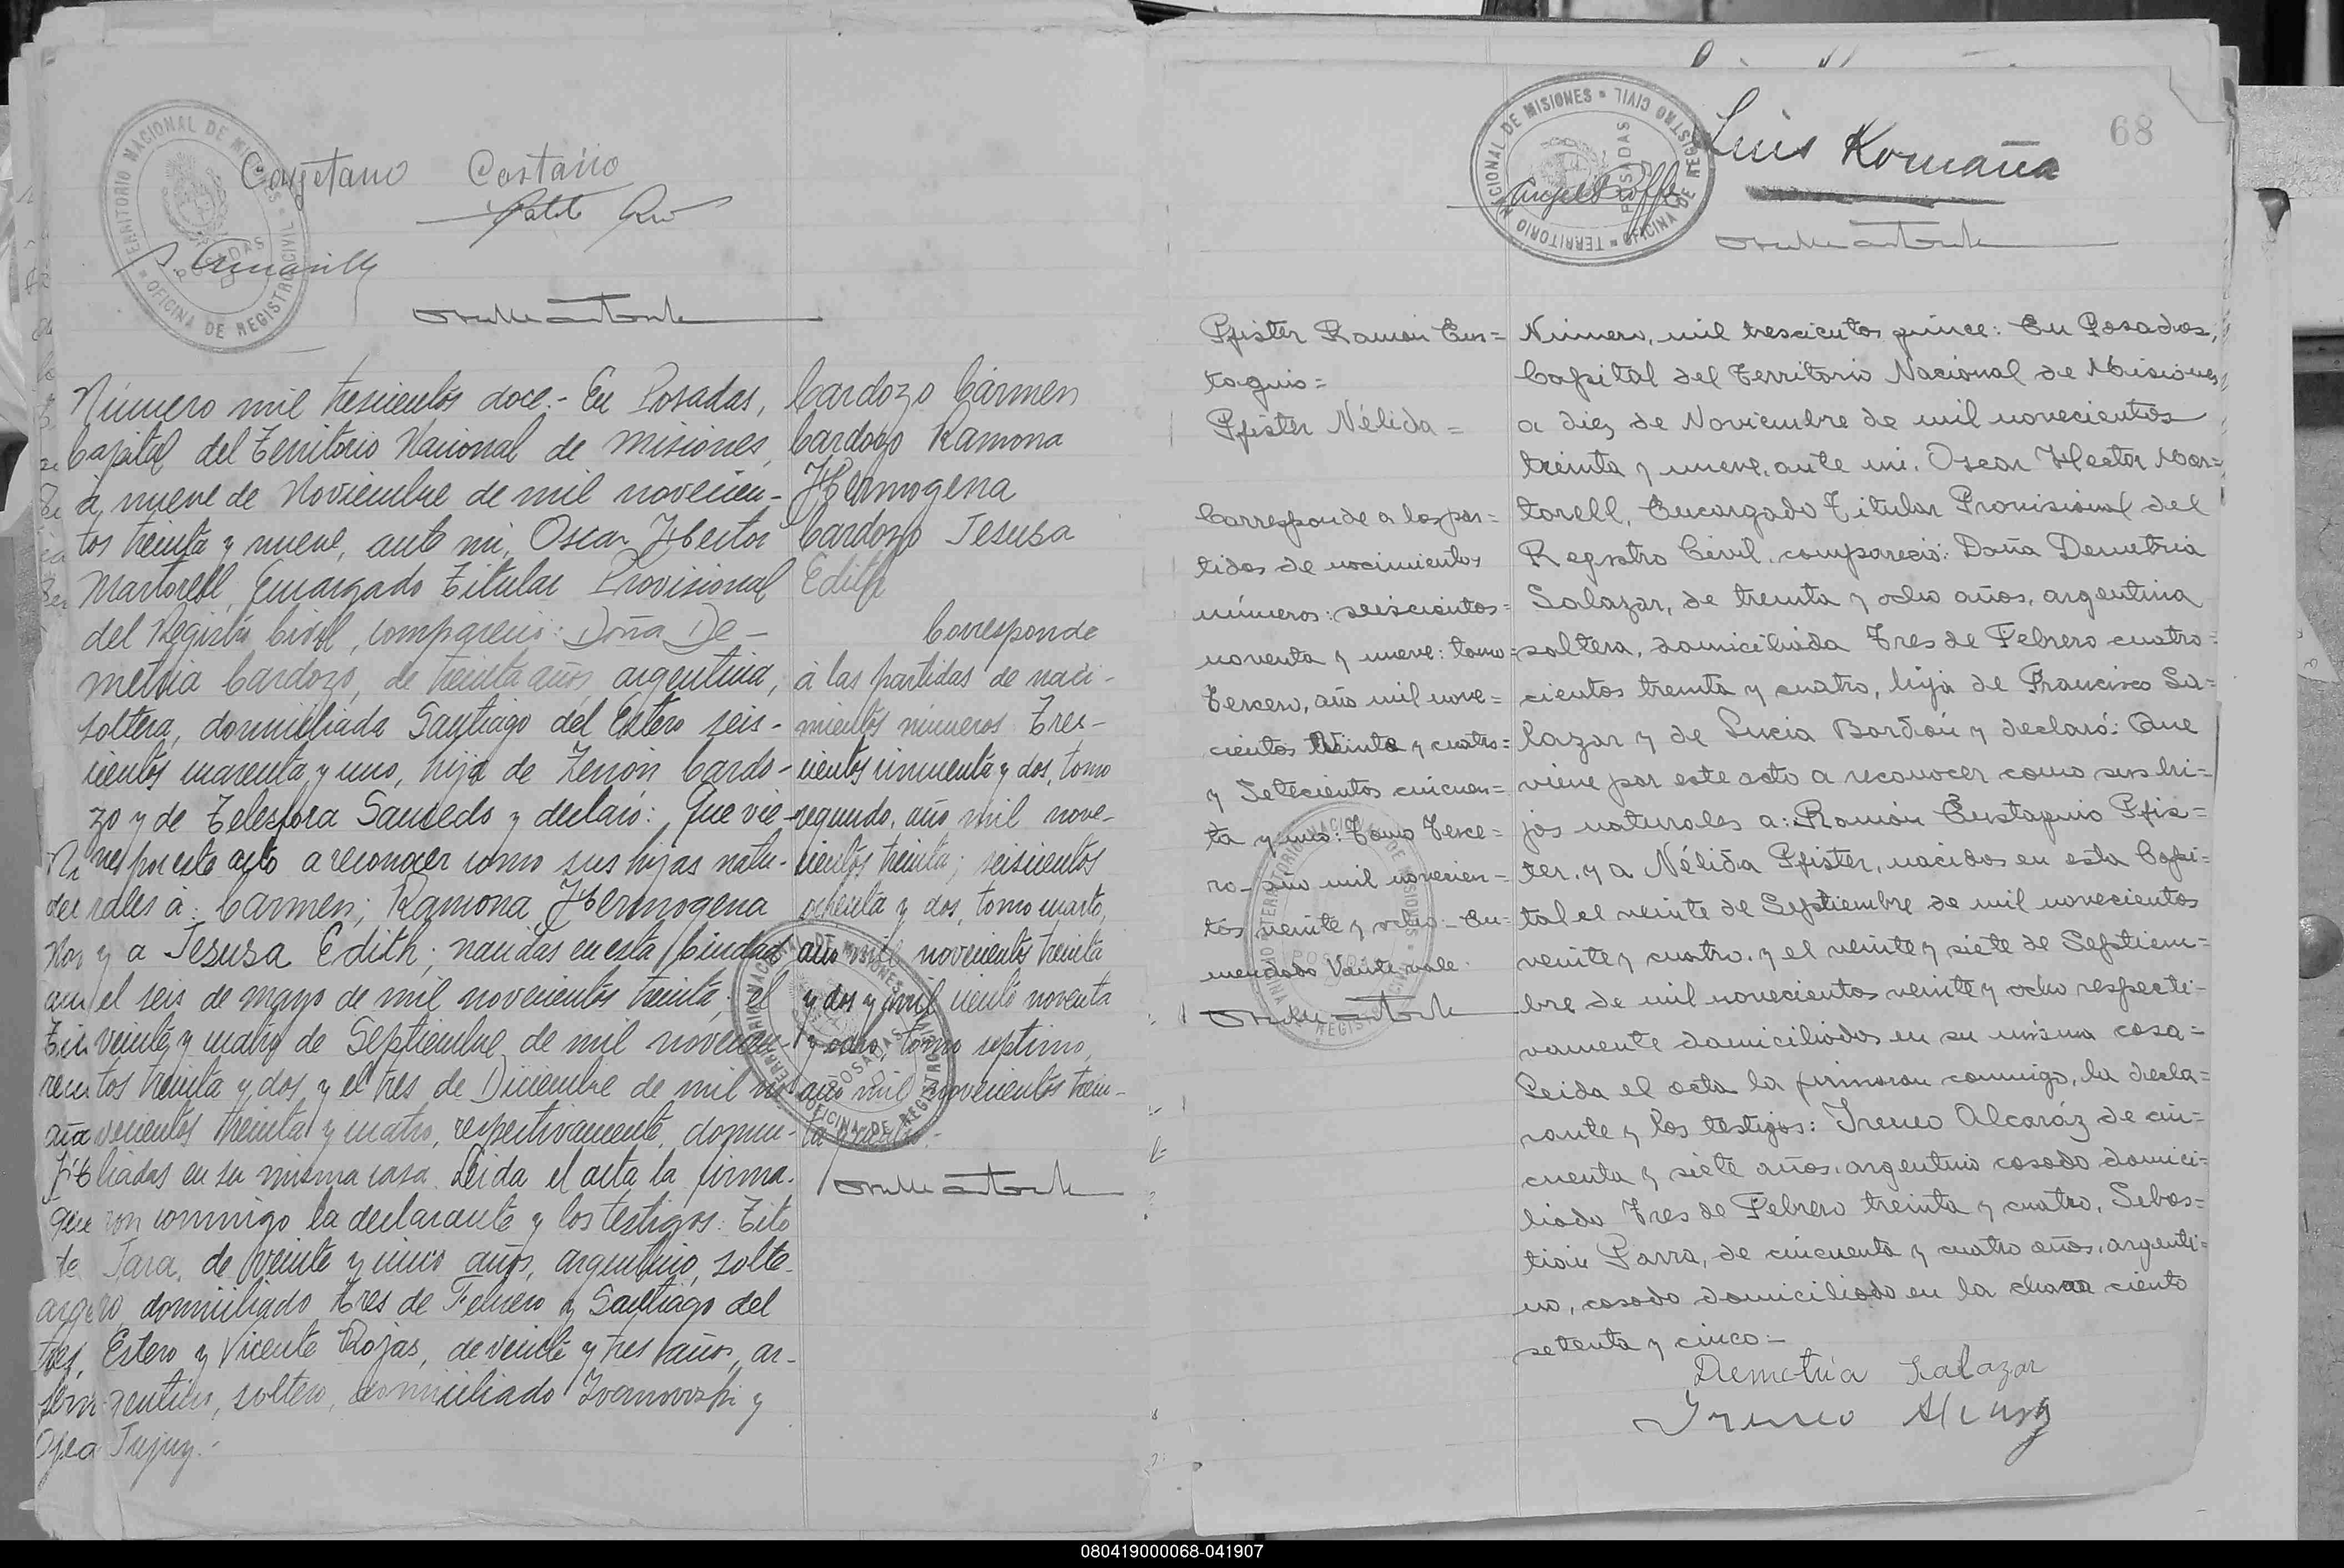 Cayetano Castaño
TERRITORIO NACIONAL DE MISIONES
POSADAS
OFICINA DE REGISTRO CIVIL
Número mil trescientos doce.- En Posadas,
Capital del Territorio Nacional de Misiones,
á nueve de Noviembre de mil novecien-
tos treinta y nueve, ante mi, Oscar Hector
Martorell, Encargado Titular Provisional
del Registro Civil, compareció: Doña De-
metria Cardozo, de treinta años, argentina,
soltera, domiciliada Santiago del Estero seis-
cientos cuarenta y uno, hija de Zenón Cardo-
zo y de Telesfora Saucedo y declaró: Que vie-
ne por este acto a reconocer como sus hijas natu-
rales á: Carmen; Ramona Hermogena
y a Jesusa Edith; nacidas en esta Ciudad
el seis de mayo de mil novecientos treinta; el
veinte y cuatro de Septiembre de mil novecien-
tos treinta y dos y el tres de Diciembre de mil no-
vecientos treinta y cuatro, respectivamente, domi-
ciliadas en su misma casa. Leida el acta la firma-
ron conmigo la declarante y los testigos: Tito
Jara, de veinte y cinco años, argentino, solte-
ro, domiciliado tres de Febrero y Santiago del
Estero y Vicente Rojas, de veinte y tres años, ar-
gentino, soltero, domiciliado Ivanovoski y
Jujuy.-
Cardozo Cármen
Cardozo Ramona
Hermogena
Cardozo Jesusa
Edith
Corresponde
á las partidas de naci-
mientos números Tres-
cientos cincuenta y dos, tomo
segundo, año mil nove-
cientos treinta; seiscientos
ochenta y dos, tomo cuarto,
año mil novecientos treinta
y dos y mil ciento noventa
y ocho, tomo septimo,
año mil novecientos trein-
ta y cuatro.-
TERRITORIO NACIONAL DE MISIONES
POSADAS
OFICINA DE REGISTRO CIVIL
68
Luis Romaña
TERRITORIO NACIONAL DE MISIONES
POSADAS
OFICINA DE REGISTRO CIVIL
Pfister Ramón Eus=
taquio=
Pfister Nélida=
Corresponde a las par=
tidas de nacimientos
números: seiscientos=
noventa y nueve: tomo=
Tercero, año mil nove=
cientos Veinte y cuatro=
y Setecientos cincuen=
ta y uno: Tomo Terce=
ro- año mil novecien=
tos veinte y ocho- En=
mendado Veinte vale.
TERRITORIO NACIONAL DE MISIONES
POSADAS
REGISTRO CIVIL
Número, mil trescientos quince: En Posadas,
Capital del Territorio Nacional de Misiones,
a diez de Noviembre de mil novecientos
treinta y nueve, ante mi, Oscar Hector Mar=
torell, Encargado Titular Provisional del
Registro Civil, compareció: Doña Demetria
Salazar, de treinta y ocho años, argentina
soltera, domiciliada Tres de Febrero cuatro=
cientos treinta y cuatro, hija de Francisco Sa=
lazar y de Lucia Bordón y declaró: Que
viene por este acto a reconocer como sus hi=
jos naturales a: Ramón Eustaquio Pfis=
ter, y a Nélida Pfister, nacidos en esta Capi=
tal el veinte de Septiembre de mil novecientos
veinte y cuatro, y el veinte y siete de Septiem=
bre de mil novecientos veinte y ocho respecti-
vamente domiciliados en su misma casa=
Leida el acta la firmaron conmigo, la decla=
rante y los testigos: Ireneo Alcaráz de cin=
cuenta y siete años, argentino casado domici=
liado Tres de Febrero treinta y cuatro, Sebas=
tián Parra, de cincuenta y cuatro años, argenti=
no, casado domiciliado en la chacra ciento
setenta y cinco:-
Demetria Salazar
Ireneo
080419000068-041907